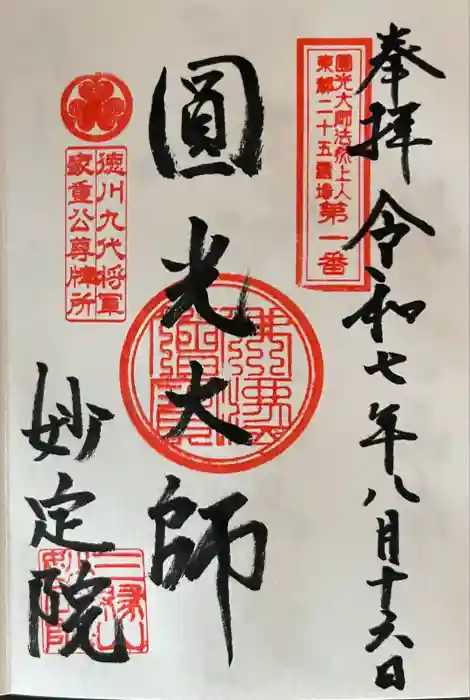 奉拝 令和七年八月十六日
圓光大師法然上人
東都二十五霊場第一番
圓光大師
徳川九代将軍
家重公尊牌所
妙定院